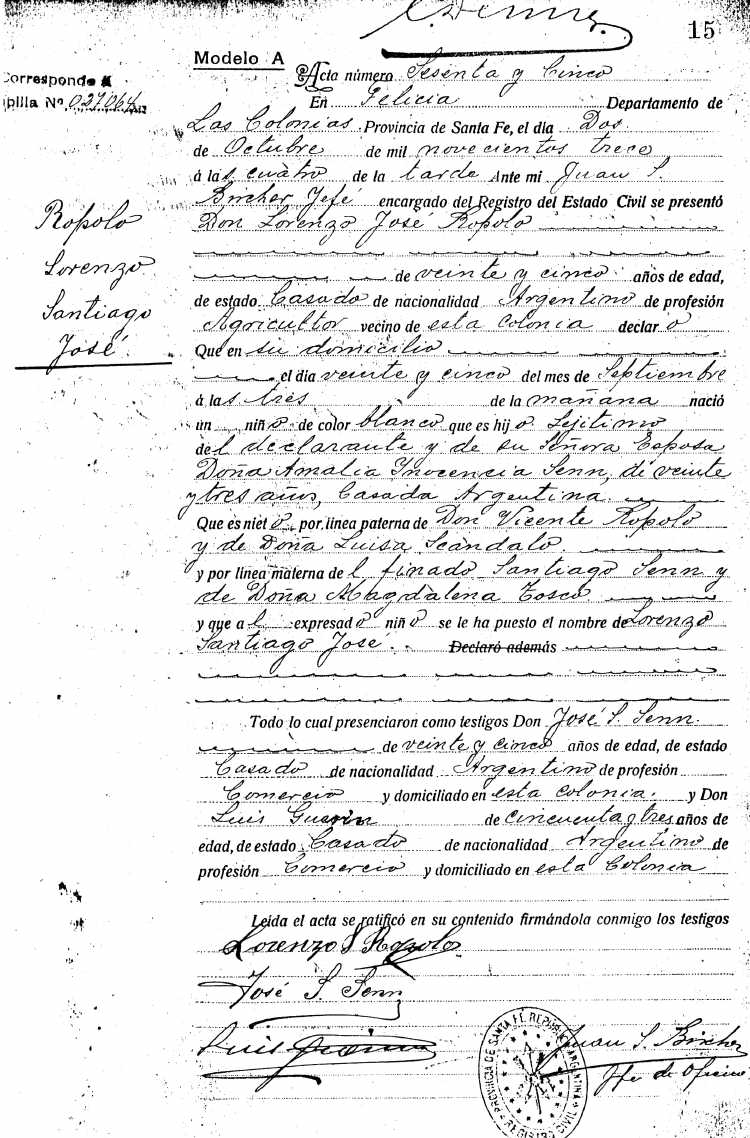 15
Modelo A
Corresponde A
pilla Nº 027064
Acta número Sesenta y Cinco
En Felicia Departamento de
Las Colonias. Provincia de Santa Fe, el día Dos
de Octubre de mil novecientos trece
á las cuatro de la tarde Ante mi Juan S.
Bircher Jefé encargado del Registro del Estado Civil se presentó
Don Lorenzo José Ropolo
de veinte y cinco años de edad,
de estado Casado de nacionalidad Argentino de profesión
Agricultor vecino de esta colonia declar ó
Que en su domicilio
el día veinte y cinco del mes de Septiembre
á las tres de la mañana nació
un niño de color blanco que es hijo Lejitimo
del declarante y de su Señora Esposa
Doña Amalia Inocencia Senn, de veinte
y tres años, Casada Argentina.
Que es nieto por línea paterna de Don Vicente Ropolo
y de Doña Luisa Scándalo
y por línea materna del finado Santiago Senn y
de Doña Magdalena Tosco
y que al expresado niño se le ha puesto el nombre de Lorenzo
Santiago José. Declaró además
Todo lo cual presenciaron como testigos Don José S. Senn.
de veinte y cinco años de edad, de estado
Casado de nacionalidad Argentino de profesión
Comercio y domiciliado en esta colonia. y Don
Luis de cincuenta y tres años de
edad, de estado Casado de nacionalidad Argentino de
profesión Comercio y domiciliado en esta Colonia
Leida el acta se ratificó en su contenido firmándola conmigo los testigos
Lorenzo J Ropolo
José S. Senn
Luis
Juan S. Bircher
Jfe de Oficina
PROVINCIA DE SANTA FÉ REPÚBLICA ARGENTINA
REGISTRO CIVIL
Ropolo
Lorenzo
Santiago
José